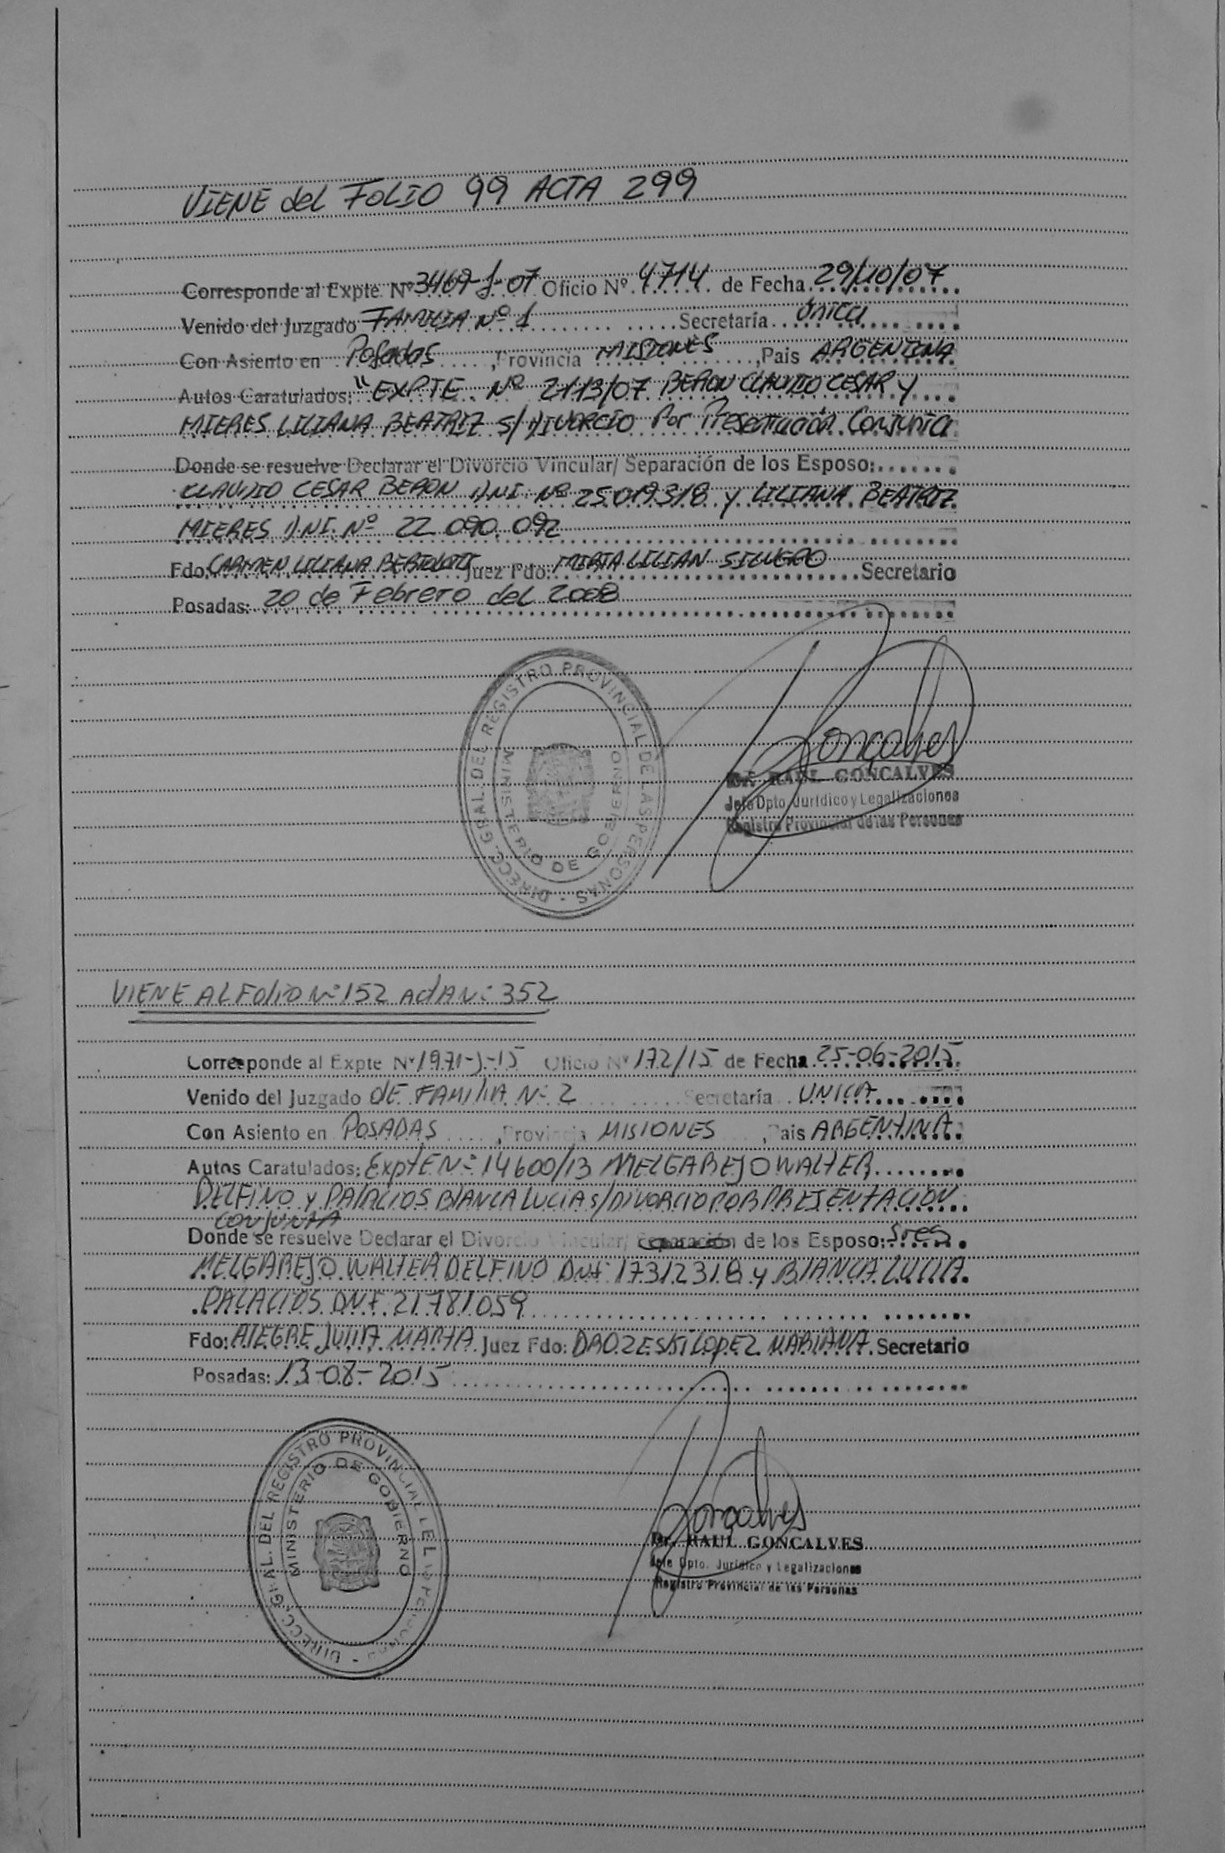 VIENE del FOLIO 99 ACTA 299
Corresponde al Expte. Nº 3469-J-07 Oficio Nº 4714 de Fecha 29/10/07
Venido del Juzgado FAMILIA Nº 1 Secretaría Única
Con Asiento en Posadas, Provincia MISIONES, Pais ARGENTINA
Autos Caratulados: "EXPTE. Nº 2113/07 BERON CLAUDIO CESAR Y
MIERES LILIANA BEATRIZ S/ DIVORCIO Por Presentación Conjunta
Donde se resuelve Declarar el Divorcio Vincular/ Separación de los Esposo:
CLAUDIO CESAR BERON D.N.I. Nº 25.019.318 y LILIANA BEATRIZ
MIERES D.N.I. Nº 22.090.092
Fdo: CARMEN LILIANA Juez Fdo: MIRTA LILIAN Secretario
Posadas: 20 de Febrero del 2008
DIRECC. GRAL. DEL REGISTRO PROVINCIAL DE LAS PERSONAS -
MINISTERIO DE GOBIERNO
Goncalves
Dr. RAUL GONCALVES
Jefe Dpto. Jurídico y Legalizaciones
Registro Provincial de las Personas
VIENE AL Folio Nº 152 ActA Nº 352
Corresponde al Expte Nº 1971-J-15 Oficio Nº 172/15 de Fecha 25-06-2015
Venido del Juzgado dE FAMILIA Nº 2 Secretaría UNICA
Con Asiento en POSADAS, Provincia MISIONES, Pais ARGENTINA
Autos Caratulados: ExptE Nº 14600/13 MELGAREJO WALTER
DELFINO Y PALACIOS BIANCA LUCIA S/ DIVORCIO POR PRESENTACION
CONJUNTA
Donde se resuelve Declarar el Divorcio Vincular/ Separación de los Esposo: Sres
MELGAREJO WALTER DELFINO DNI: 17312318 y BIANCA LUCIA
PALACIOS DNI. 21.781.059
Fdo: ALEGRE JULIA MARTA Juez Fdo: LOPEZ MARIANA Secretario
Posadas: 13-08-2015
DIRECC. GRAL. DEL REGISTRO PROVINCIAL DE LAS PERSONAS -
MINISTERIO DE GOBIERNO
Goncalves
Dr. RAUL GONCALVES
Jefe Dpto. Jurídico y Legalizaciones
Registro Provincial de las Personas